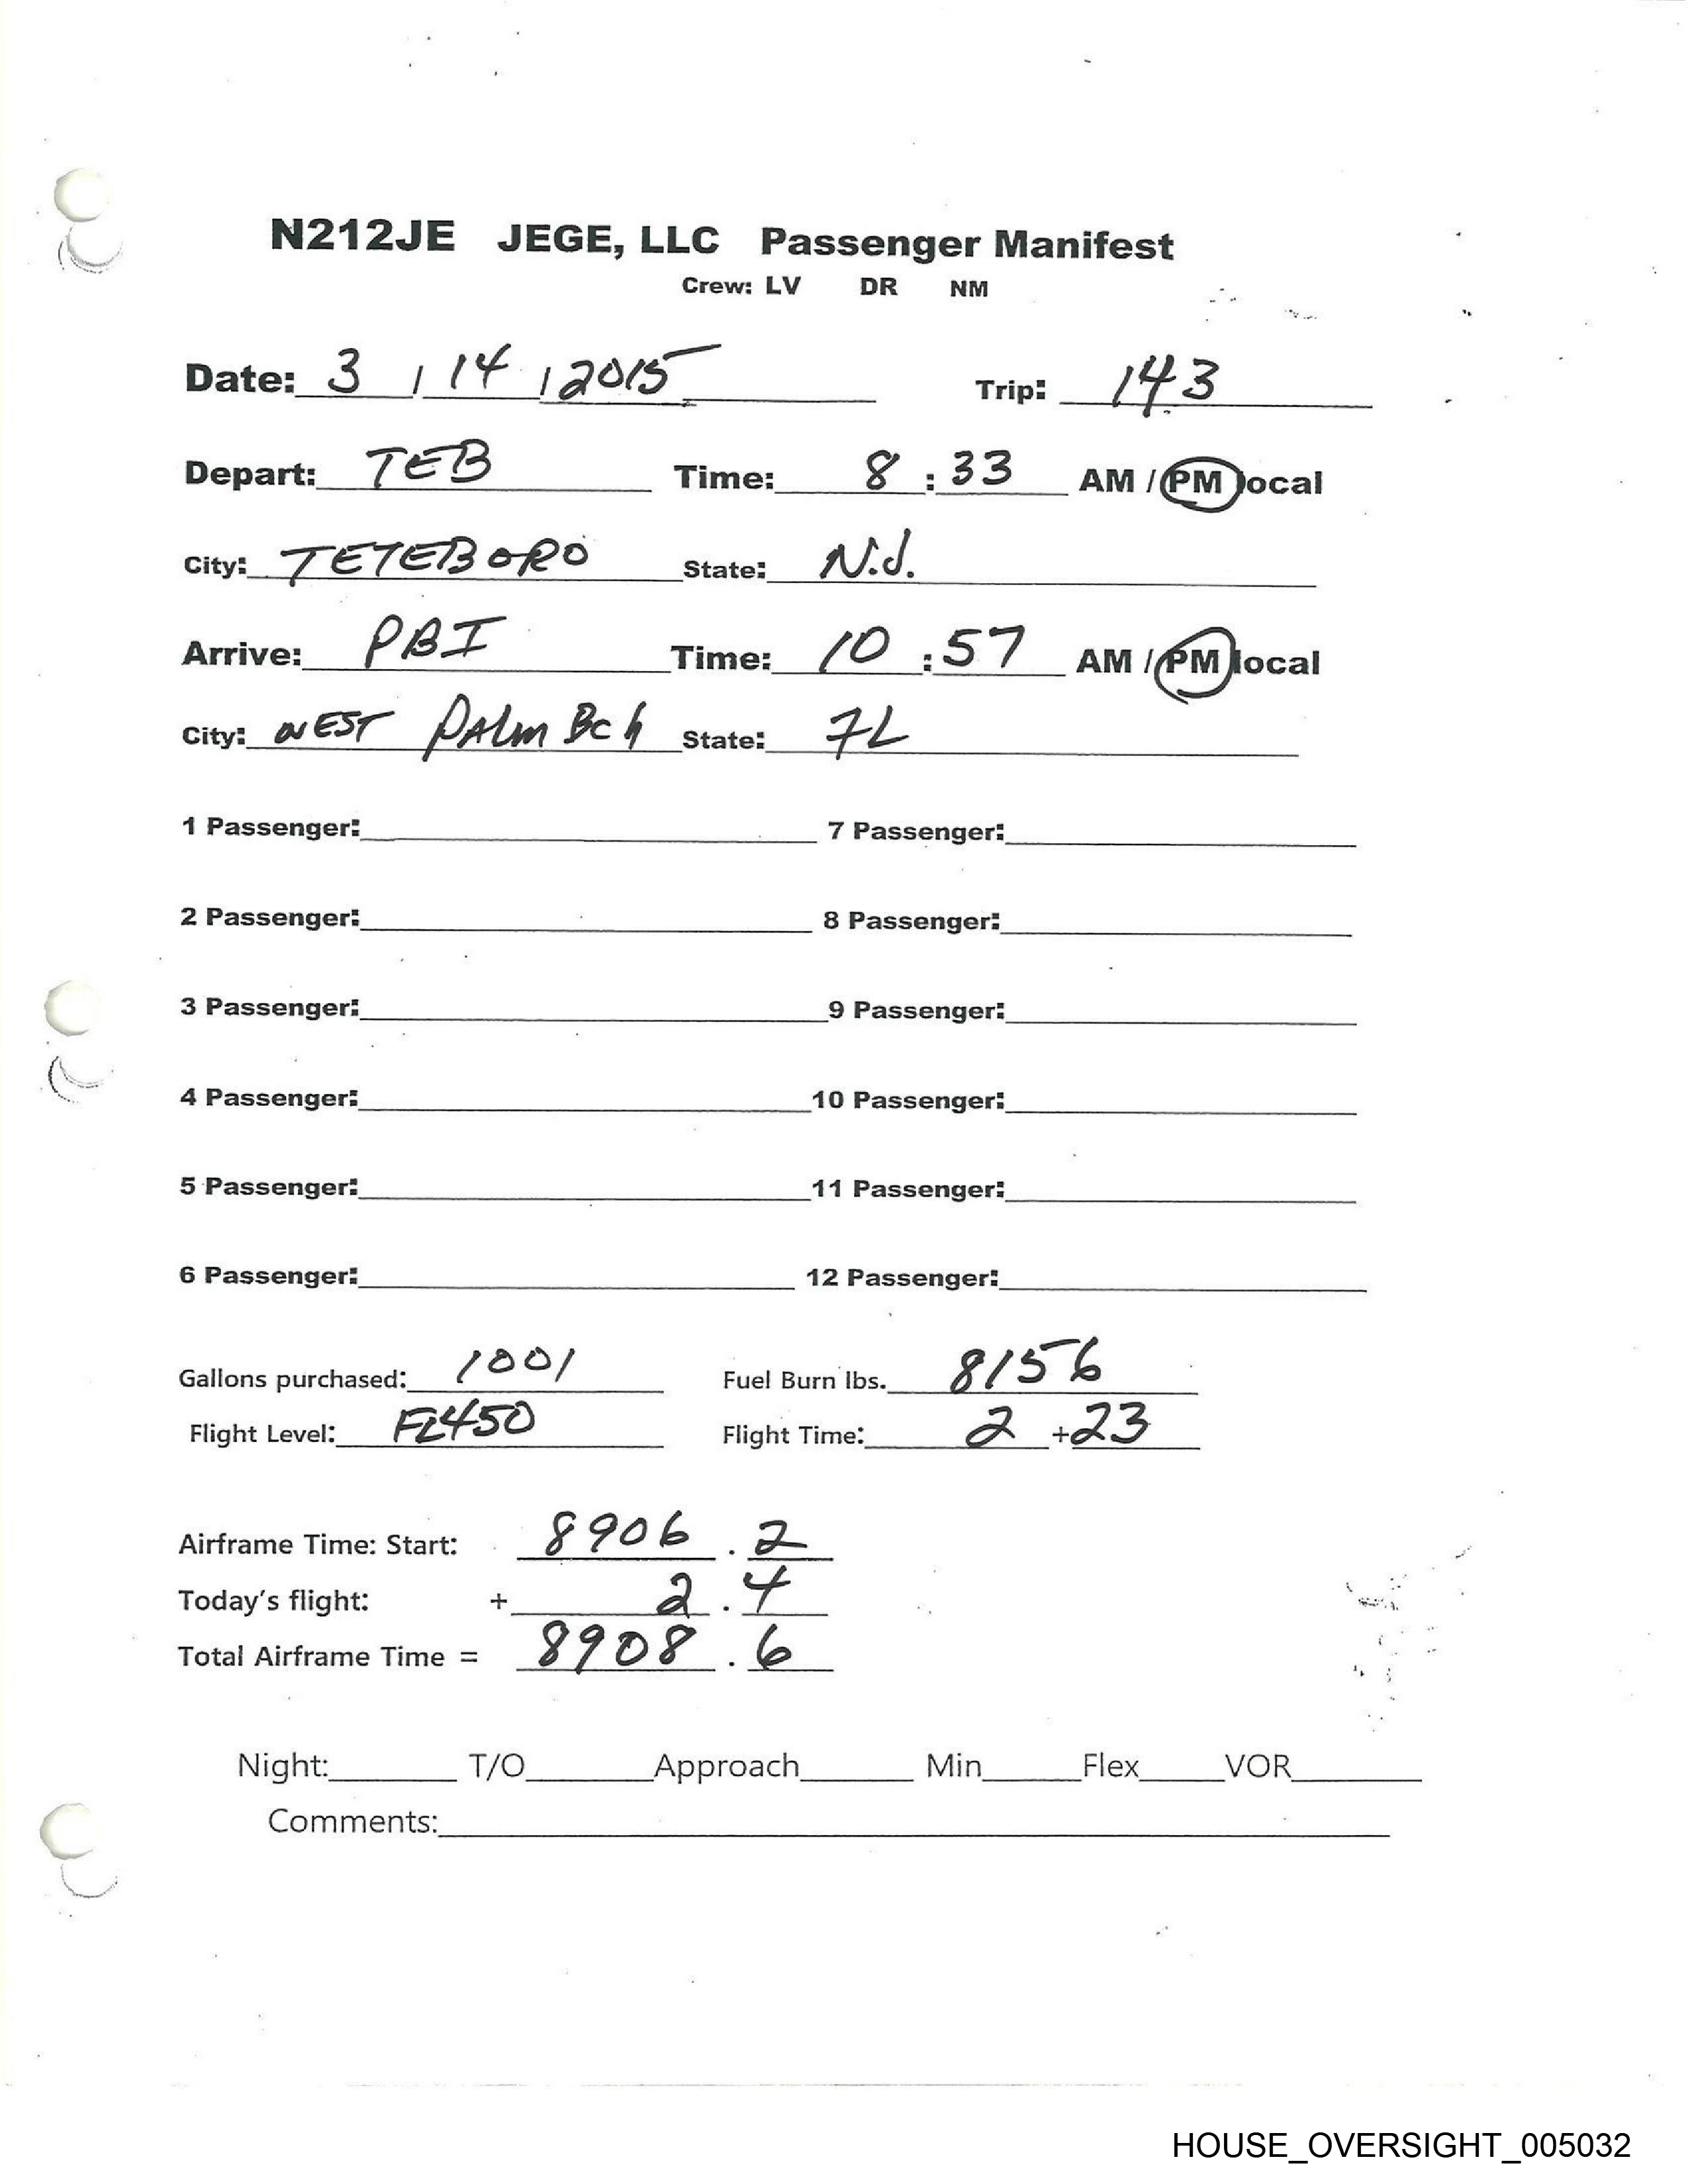 N212JE JEGE, LLC Passenger Manifest
Crew: LV DR NM
Date: 3 / 14 / 2015 Trip: 143
Depart: TEB Time: 8 : 33 AM / PM local
City: TETEBORO State: N.J.
Arrive: PBI Time: 10 : 57 AM / PM local
City: WEST PALM BCh State: FL
1 Passenger: 7 Passenger:
2 Passenger: 8 Passenger:
3 Passenger: 9 Passenger:
4 Passenger: 10 Passenger:
5 Passenger: 11 Passenger:
6 Passenger: 12 Passenger:
Gallons purchased: 1001 Fuel Burn lbs. 8156
Flight Level: FL450 Flight Time: 2 + 23
Airframe Time: Start: 8906 . 2
Today's flight: + 2 . 4
Total Airframe Time = 8908 . 6
Night: T/O Approach Min Flex VOR
Comments:
HOUSE_OVERSIGHT_005032